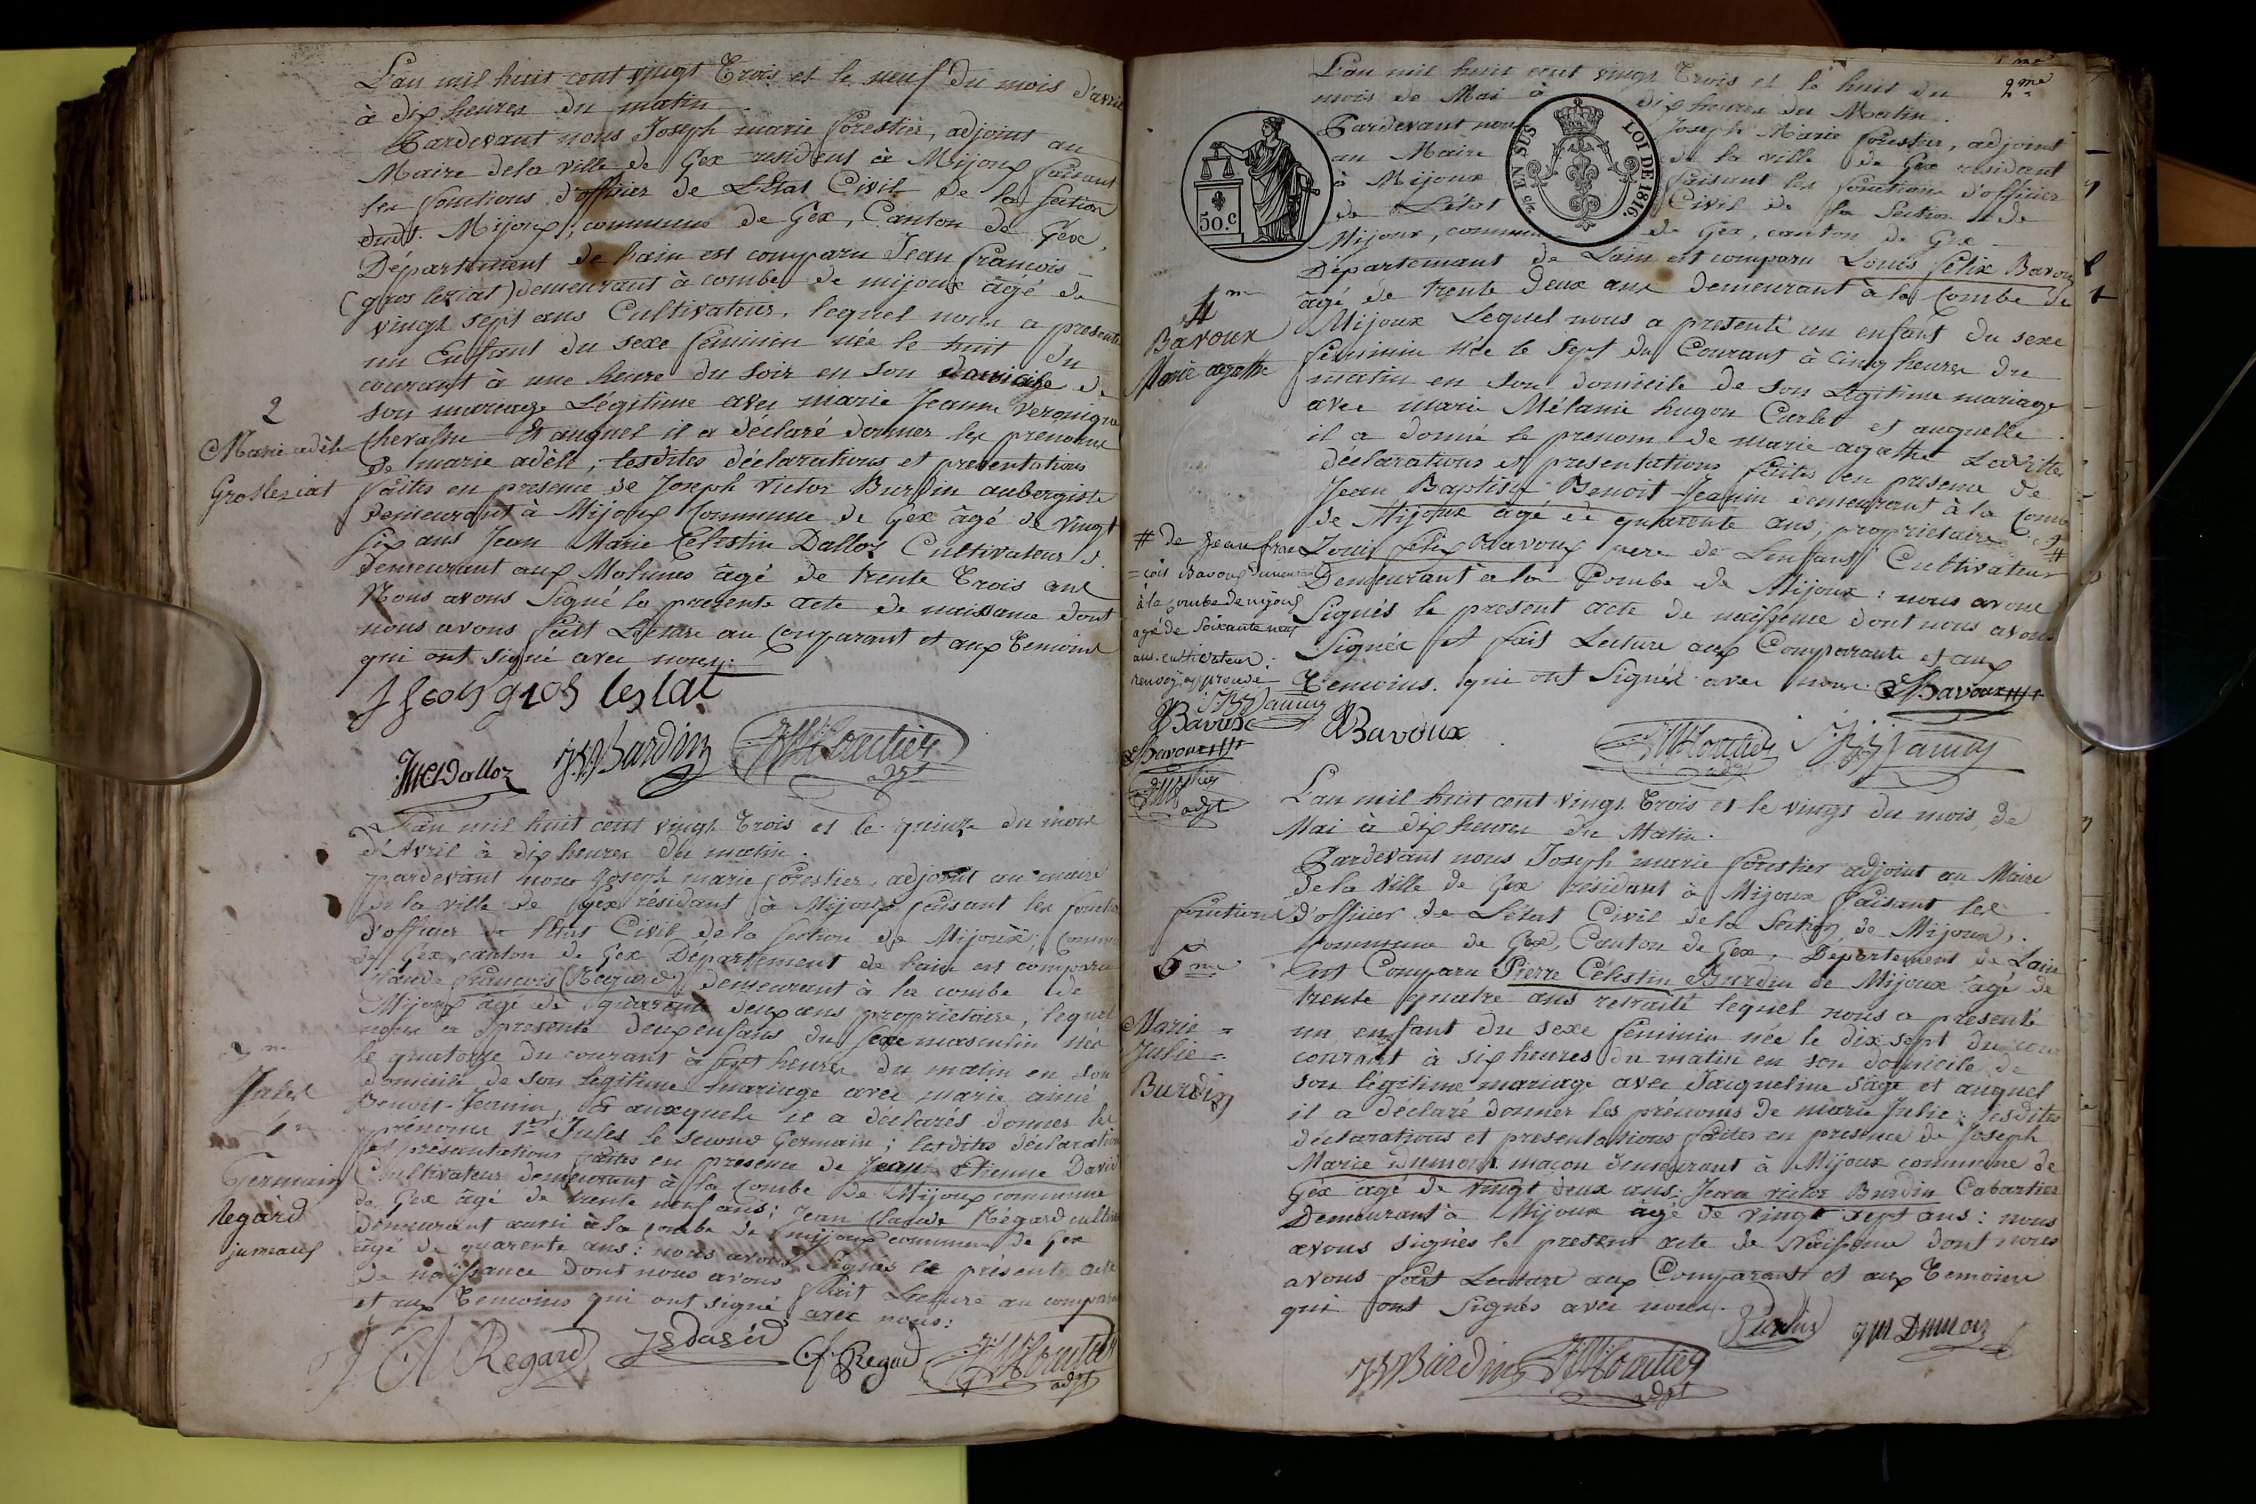 L'an mil huit cent vingt Trois et le neuf du mois d'avril
à dix heures du matin.
Pardevant nous Joseph marie forestier, adjoint au
Maire de la ville de Gex résidant à Mijoux faisant
les fonctions d'officier de L'Etat Civil de la section
dudt. Mijoux, commune de Gex, Canton de Gex,
Département de Lain est comparu Jean francois
(gros leziat) demeurant à combe de mijoux âgé de
vingt sept ans Cultivateur, lequel nous a présenté
un Enfant du sexe féminin née le huit du
courant à une heure du soir en son domicile de
son mariage Légitime avec marie Jeanne Veronique
2
Marie adèle
Groslesiat
Et auquel il a déclaré donner les prenoms
de marie adèle, lesdites déclarations et presentations
faites en presence de Joseph Victor Burdin aubergiste
demeurant à Mijoux Commune de Gex âgé de vingt
six ans Jean Marie Celestin Dalloz Cultivateur
demeurant aux Molunes âgé de trente Trois ans
Nous avons Signé la presente acte de naissance dont
nous avons fait Lecture au Comparant et aux Temoins
qui ont signé avec nous.
gros leziat
JMC Dalloz JV Burdin JM Forestier adjt
L'an mil huit cent vingt Trois et le quinze du mois
d'Avril à dix heures du matin.
pardevant nous Joseph marie forestier, adjoint au maire
de la ville de Gex résidant à Mijoux faisant les
d'officier de l'état Civil de la section de Mijoux,
de Gex, canton de Gex Département de Lain est comparu
Claude francois (Regard) demeurant à la combe de
Mijoux âgé de quarente deux ans proprietaire, lequel
nous a presenté deux enfans du sexe masculin nés
le quatorze du courant à sept heures du matin en son
domicile de son légitime mariage avec marie aimé
Jules
Germain
Regard
jumeaux
Benoit-Jeanin, Et auxquels il a déclarés donner les
prénoms 1er Jules le second Germain; lesdites déclarations
et présentations faites en presence de Jean Etienne David
Cultivateur demeurant à la Combe de Mijoux commune
de Gex âgé de trente neuf ans; Jean Claude Régard
demeurant aussi à la combe de mijoux commune de Gex
âgé de quarente ans: nous avons Signés le présent acte
de naissance dont nous avons fait Lecture au
et aux Temoins qui ont signé avec nous:
Regard JE David CF Regard JM Forestier adjt
2me
L'an mil huit cent vingt Trois et le huit du
mois de Mai à dix heures du Matin.
Pardevant nous Joseph Marie forestier, adjoint
au Maire de la ville de Gex résidant
à Mijoux faisant les fonctions d'officier
de L'état Civil de la Section de
Mijoux, commune de Gex, canton de Gex
50.C
EN SUS
LOI DE 1816.
Département de Lain est comparu Louis félix Bavoux
âgé de trente deux ans demeurant à la Combe de
4me
Bavoux
Marie agathe
Mijoux Lequel nous a presenté un enfant du sexe
féminin née le sept du Courant à cinq heures du
matin en son domicile de son Légitime mariage
avec marie Mélanie hugon Carlet et auquelle
il a donné le prenom de marie agathe
déclarations et presentations faites en presence de
Jean Baptiste Benoit-Jeanin demeurant à la Combe
de Mijoux âgé de quarente ans, proprietaire #
Louis félix Bavoux pere de L'enfant Cultivateur
Demeurant à la Combe de Mijoux: nous avons
Signés le present acte de naissance dont nous avons
Signée et fait Lecture aux Comparants et aux
Temoins. qui ont Signés avec nous. Bavoux
# de jean fran
çois Bavoux
à la combe de mijoux
agé de soixante neuf
ans. cultivateur;
renvoy approuvé
JB Janin
Bavoux
Bavoux
adjt
Bavoux JM Forestier adjt JB Janin
L'an mil huit cent vingt Trois et le vingt du mois de
Mai à dix heures du Matin.
Pardevant nous Joseph marie forestier adjoint au Maire
de la Ville de Gex résidant à Mijoux faisant les
fonctions d'officier de L'état Civil de la Section de Mijoux,
Commune de Gex, Canton de Gex, Département de Lain
5me
Marie
Julie
Burdin
Est Comparu Pierre Célestin Burdin de Mijoux âgé de
trente quatre ans retraité lequel nous a presenté
un enfant du sexe féminin née le dix sept du
courant à six heures du matin en son domicile de
son légitime mariage avec Jacqueline sage et auquel
il a déclaré donner les prénoms de marie Julie; lesdites
déclarations et presentations faites en presence de Joseph
Marie Dumont maçon demeurant à Mijoux commune de
Gex âgé de vingt deux ans; victor Burdin Cabartier
Demeurant à Mijoux âgé de vingt sept ans: nous
avons signés le present acte de Naissance dont nous
avons fait Lecture aux Comparant et aux Temoins
qui ont signés avec nous.
Burdin JM Dumon
JV Burdin JM Forestier adjt